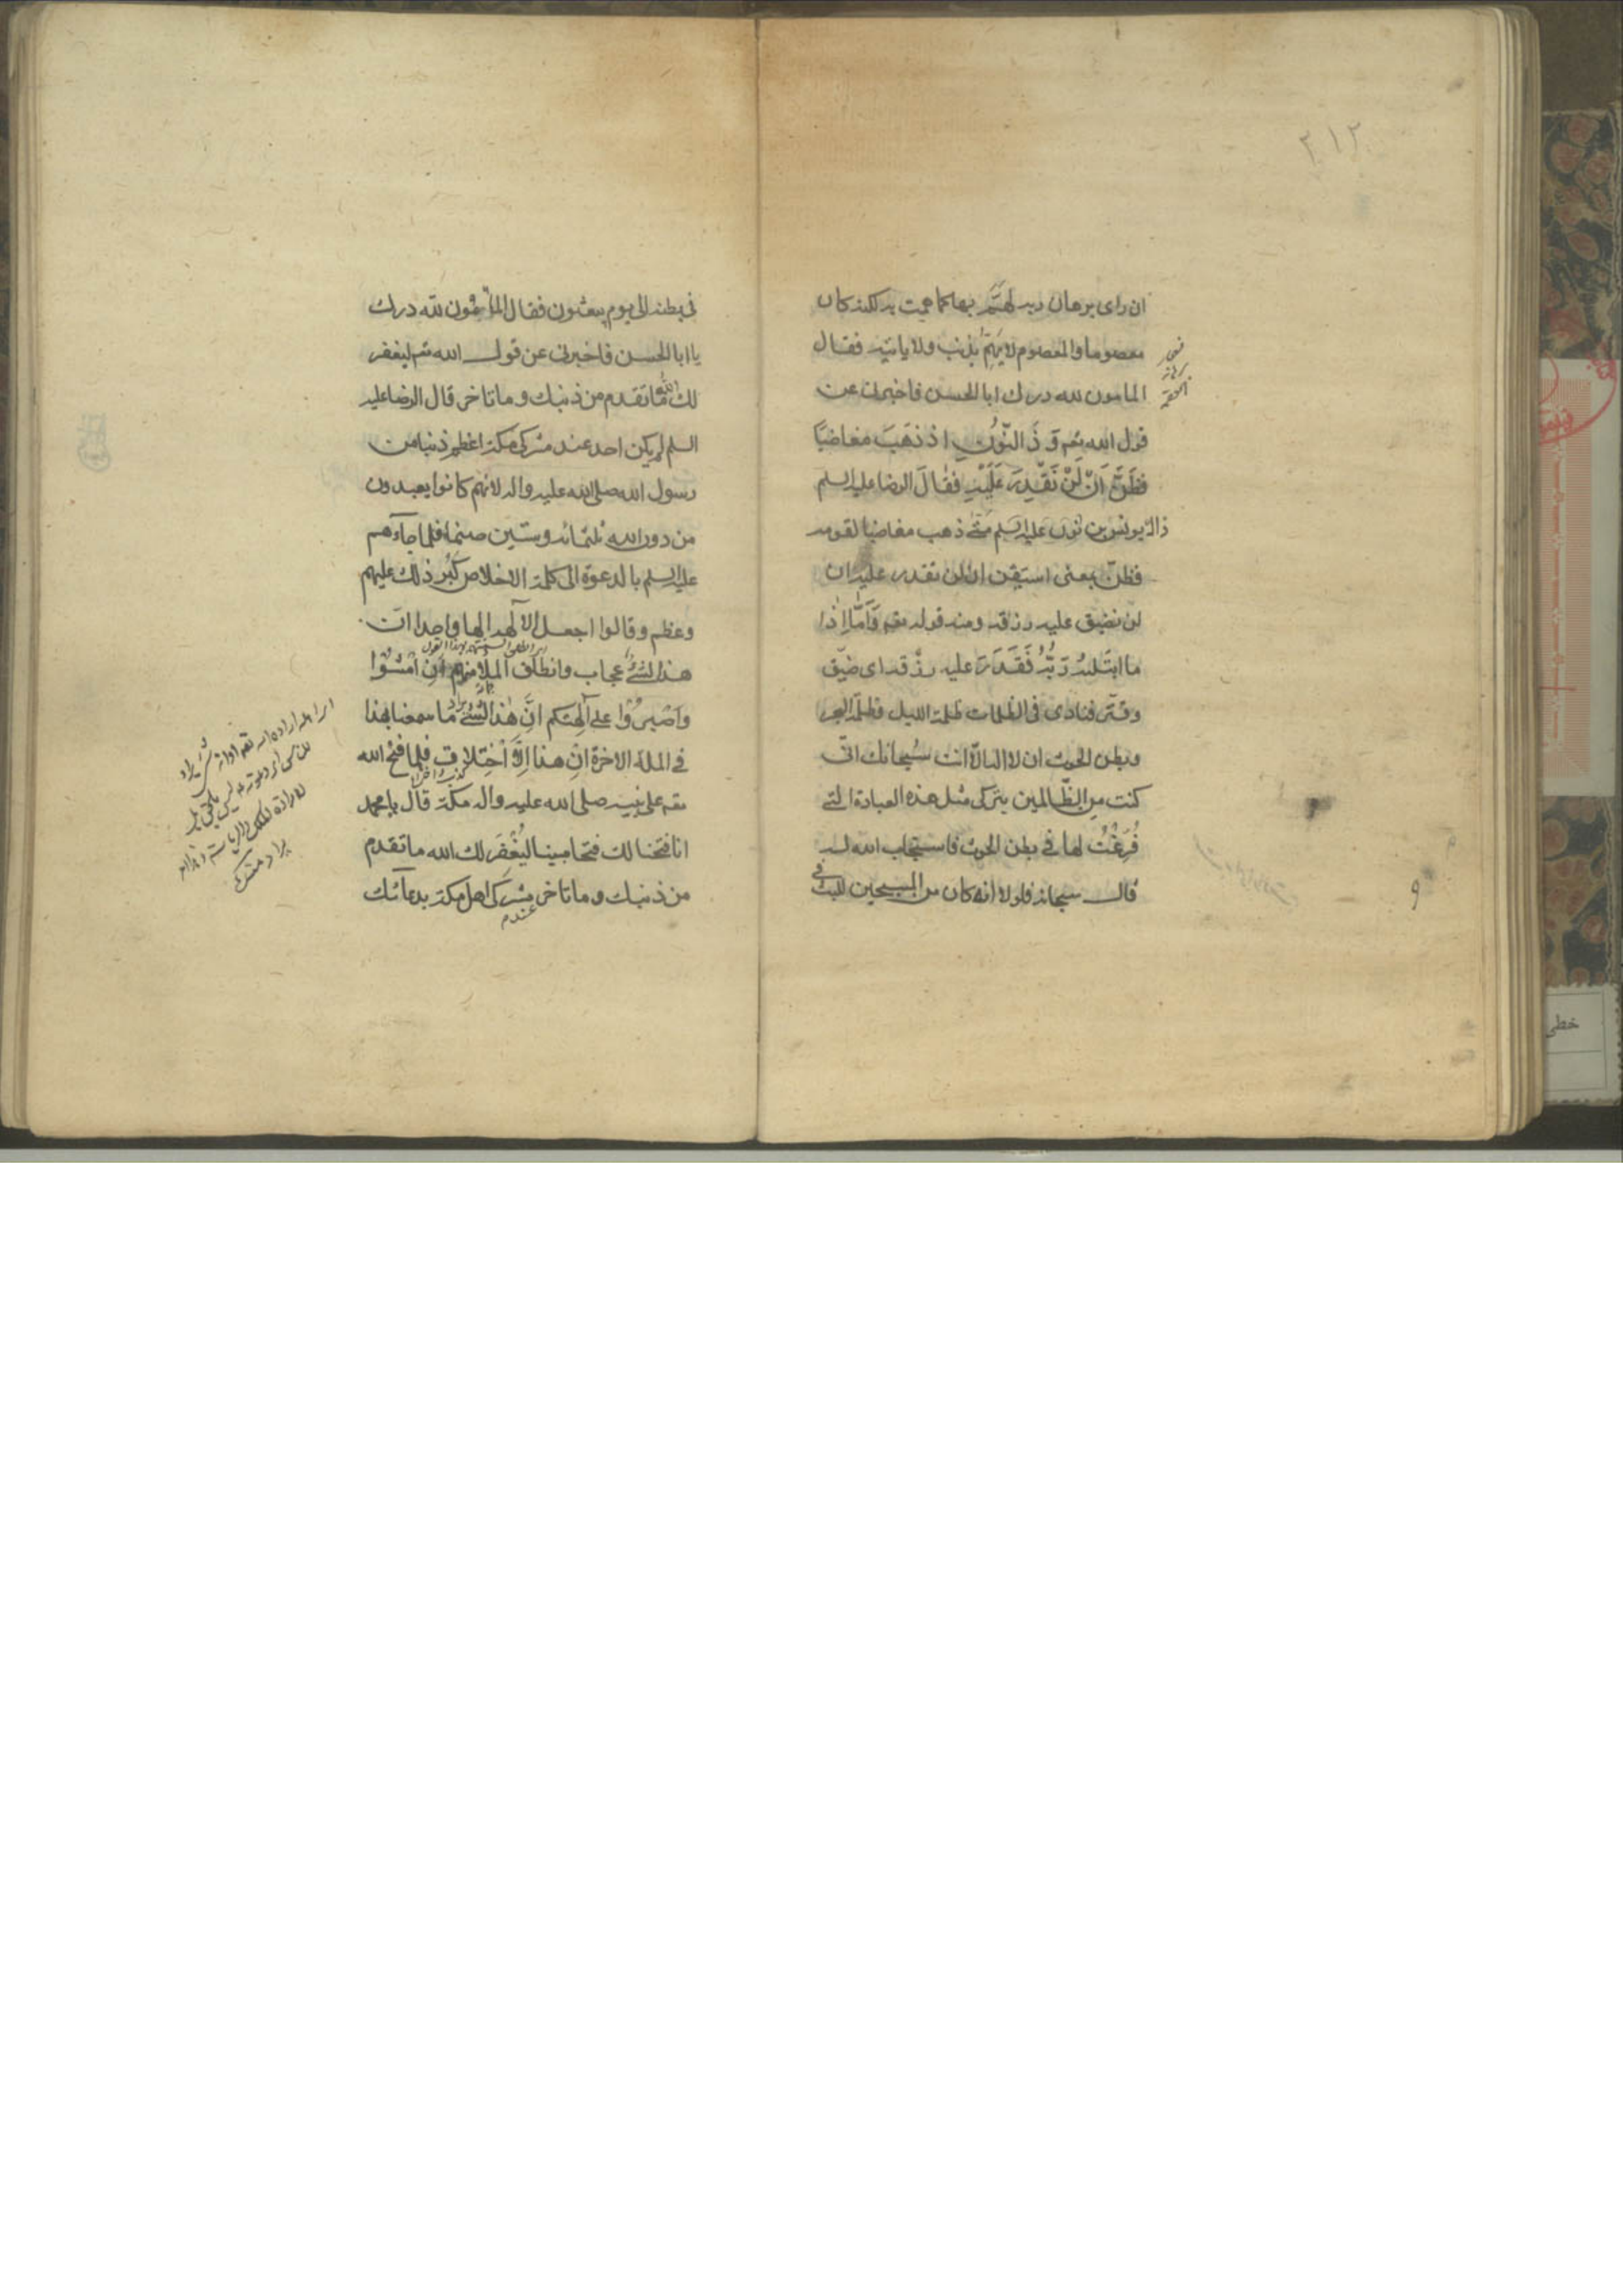 ٢١٢
ان رای برهان ربه لهمّ بها کما همت به لکنه کان
معصوما والمعصوم لا یهمّ بذنب ولا یاتیه فقال
المامون لله درک ابا الحسن فاخبرنی عن
قول الله تعم وَ ذَ النّوُنِ اذ ذهَبَ مغاضبًا
فظَنَّ اَنْ لَنْ نَقْدِرَ عَلَیْهِ فقالَ الرضا علیه السلم
ذاک یونس بن علیه السلم ذهب مغاضبا لقومه
فظنّ بمعنی استیقن ان لن نقدر علیه ان
لن نضیق علیه رزقه ومنه قوله تعم وَاَمَّا اِذا
ما ابتَلیهُ رَبُّهُ فَقَدَرَ علیه رزقه ای ضیّق
وقتّر فنادی فی الظلمات ظلمة اللیل وظلمة البحر
وبطن الحوت ان لا اله الاّ انت سُبحانک انّی
کنت من الظّالمین بترکی مثل هذه العبادة التی
فُرّغْتُ لها فی بطن الحوت فاستجاب الله له
قال سبحانه فلولا انه کان من المسبحین للبث
فی
و
فی بطنه الی یوم یبعثون فقال المامون لله درک
یا ابا الحسن فاخبرنی عن قول الله تعم لیغفر
لک الله ما تقدم من ذنبک و ما تاخر قال الرضا علیه
السلم لم یکن احد عند مشرکی مکة اعظم ذنبا من
رسول الله صلی الله علیه واله لانهم کانوا یعبدون
من دون الله ثلثمائه وستین صنما فلما جاءهم
علیه السلم بالدعوة الی کلمة الاخلاص کَبُر ذلک علیهم
وعظم و قالوا اجعل الآلهه الها واحدا انّ
هذا لشیٌ عجاب وانطلق الملأ منهم اَنِ امْشوُا
وَاصْبِرُوا علی آلِهَتکم اِنَّ هٰذا لشیٌ یراد ما سمعنا بهذا
فی الملة الاخرة اِن هذا اِلاَّ اخْتِلاق فلما فتح الله
تعم علی نبیه صلی الله علیه واله مکة قال یا محمد
انا فتحنا لک فتحا مبینا لیَغْفِرَ لک الله ما تقدم
من ذنبک و ما تاخر مشرکی اهل مکة بدعائک
عندم
خطی